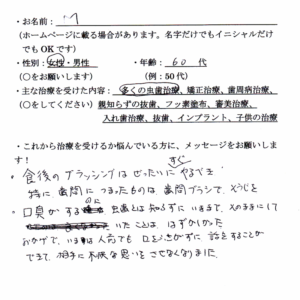 ・お名前： M
(ホームページに載る場合があります。名字だけでもイニシャルだけ
でもOKです)
・性別：女性・男性　・年齢：60代
(○をお願いします)　(例：50代)
・主な治療を受けた内容：多くの虫歯治療、矯正治療、歯周病治療、
(○をしてください) 親知らずの抜歯、フッ素塗布、審美治療、
入れ歯治療、抜歯、インプラント、子供の治療
・これから治療を受けるか悩んでいる方に、メッセージをお願いしま
す！
すぐ
・食後のブラッシングはぜったいに やるべき
特に 歯間に つまったものは、歯間ブラシで、そうじを
のに
・口臭がする 虫歯とは知らずに いままで、そのままにして
いたことは、はずかしかった
おかげで、いまは人前でも 口を 気にせずに 話をすることが
できて、相手に不快な思いをさせなくなりました。